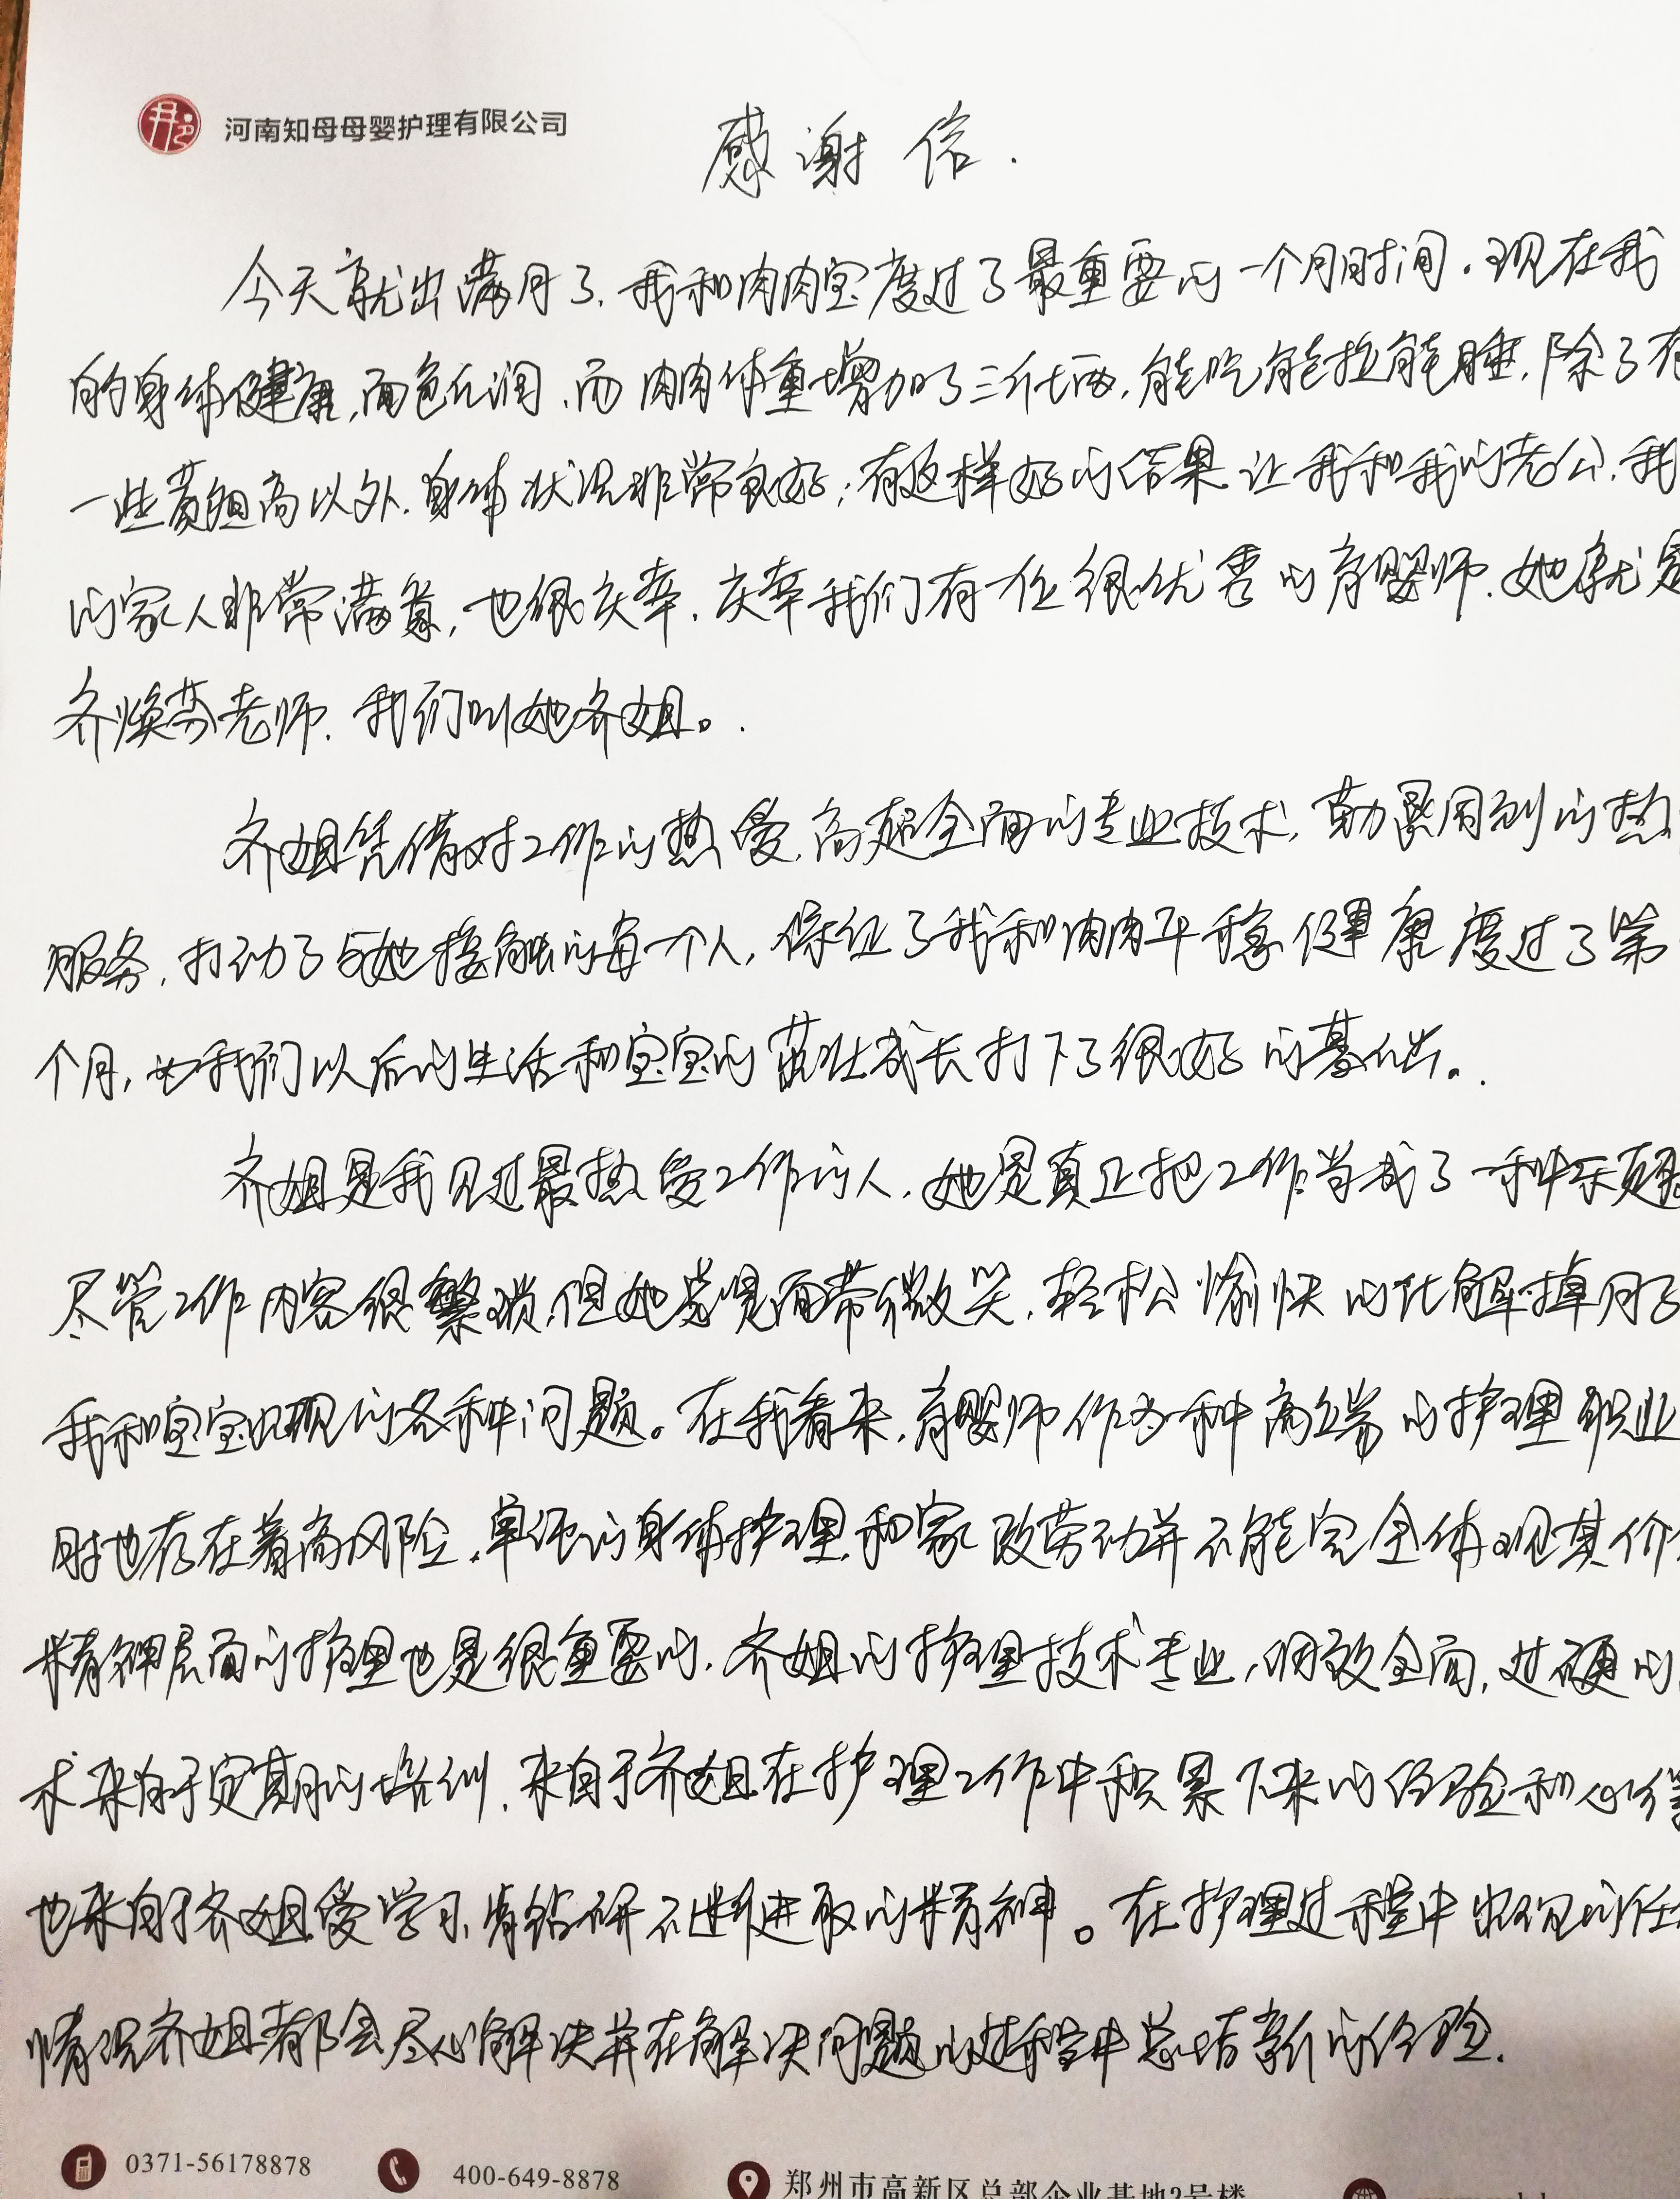 河南知母母婴护理有限公司
感谢信.
今天就出满月了,我和肉肉宝度过了最重要的一个月时间.现在我
的身体健康,面色红润,而肉肉体重增加了三斤七两,能吃能拉能睡,除了有
一些黄疸高以外,身体状况非常良好;有这样好的结果让我和我的老公,我
的家人非常满意,也很庆幸,庆幸我们有一位很优秀的育婴师.她就是
齐焕芬老师.我们叫她齐姐。.
齐姐凭借对工作的热爱,高超全面的专业技术,勤恳周到的热
服务,打动了与她接触的每一个人,保证了我和肉肉平稳健康度过了第
个月,为我们以后的生活和宝宝的茁壮成长打下了很好的基础。.
齐姐是我见过最热爱工作的人,她是真正把工作当成了一种乐趣
尽管工作内容很繁琐,但她总是面带微笑,轻松愉快的化解掉月子
我和宝宝出现的各种问题。在我看来,育婴师作为一种高端的护理职业
时也存在着高风险,单纯的身体护理和家政劳动并不能完全体现其价
精神层面的护理也是很重要的.齐姐的护理技术专业,细致全面,过硬的
术来自于定期的培训,来自于齐姐在护理工作中积累下来的经验和心得
也来自于齐姐爱学习,肯钻研不断进取的精神。在护理过程中出现的任
情况齐姐都会尽心解决并在解决问题的过程中总结新的经验.
0371-56178878
400-649-8878
郑州市高新区总部企业基地2号楼